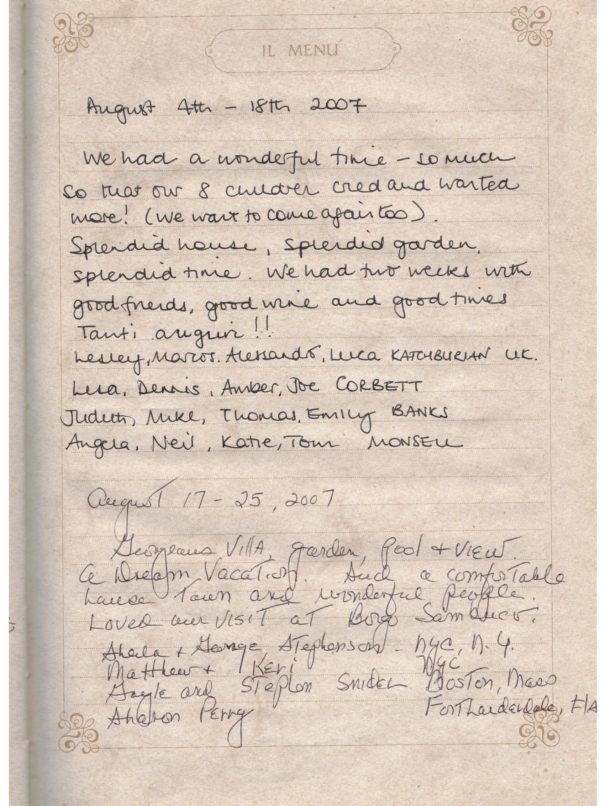 IL MENÚ
August 4th - 18th 2007
We had a wonderful time - so much
so that our 8 children cried and wanted
more! (we want to come again too).
Splendid house, splendid garden,
splendid time. We had two weeks with
good friends, good wine and good times
Tanti auguri!!
Lesley, Marcos, Alessandro, Luca KATCHBURIAN UK.
Lisa, Dennis, Amber, Joe CORBETT
Judith, Mike, Thomas, Emily BANKS
Angela, Neil, Katie, Tom MONSELL
August 17 - 25, 2007
Georgeous Villa, garden, pool + view.
a Dream Vacation. And a comfortable
town and wonderful people.
Loved our visit at Borgo Sambuco.
Sheila + George Stephenson - NYC, N.Y.
Matthew + Keri NYC
Gayle and Stephen Snider Boston, Mass
Sharon Perry Fort Lauderdale, FLA